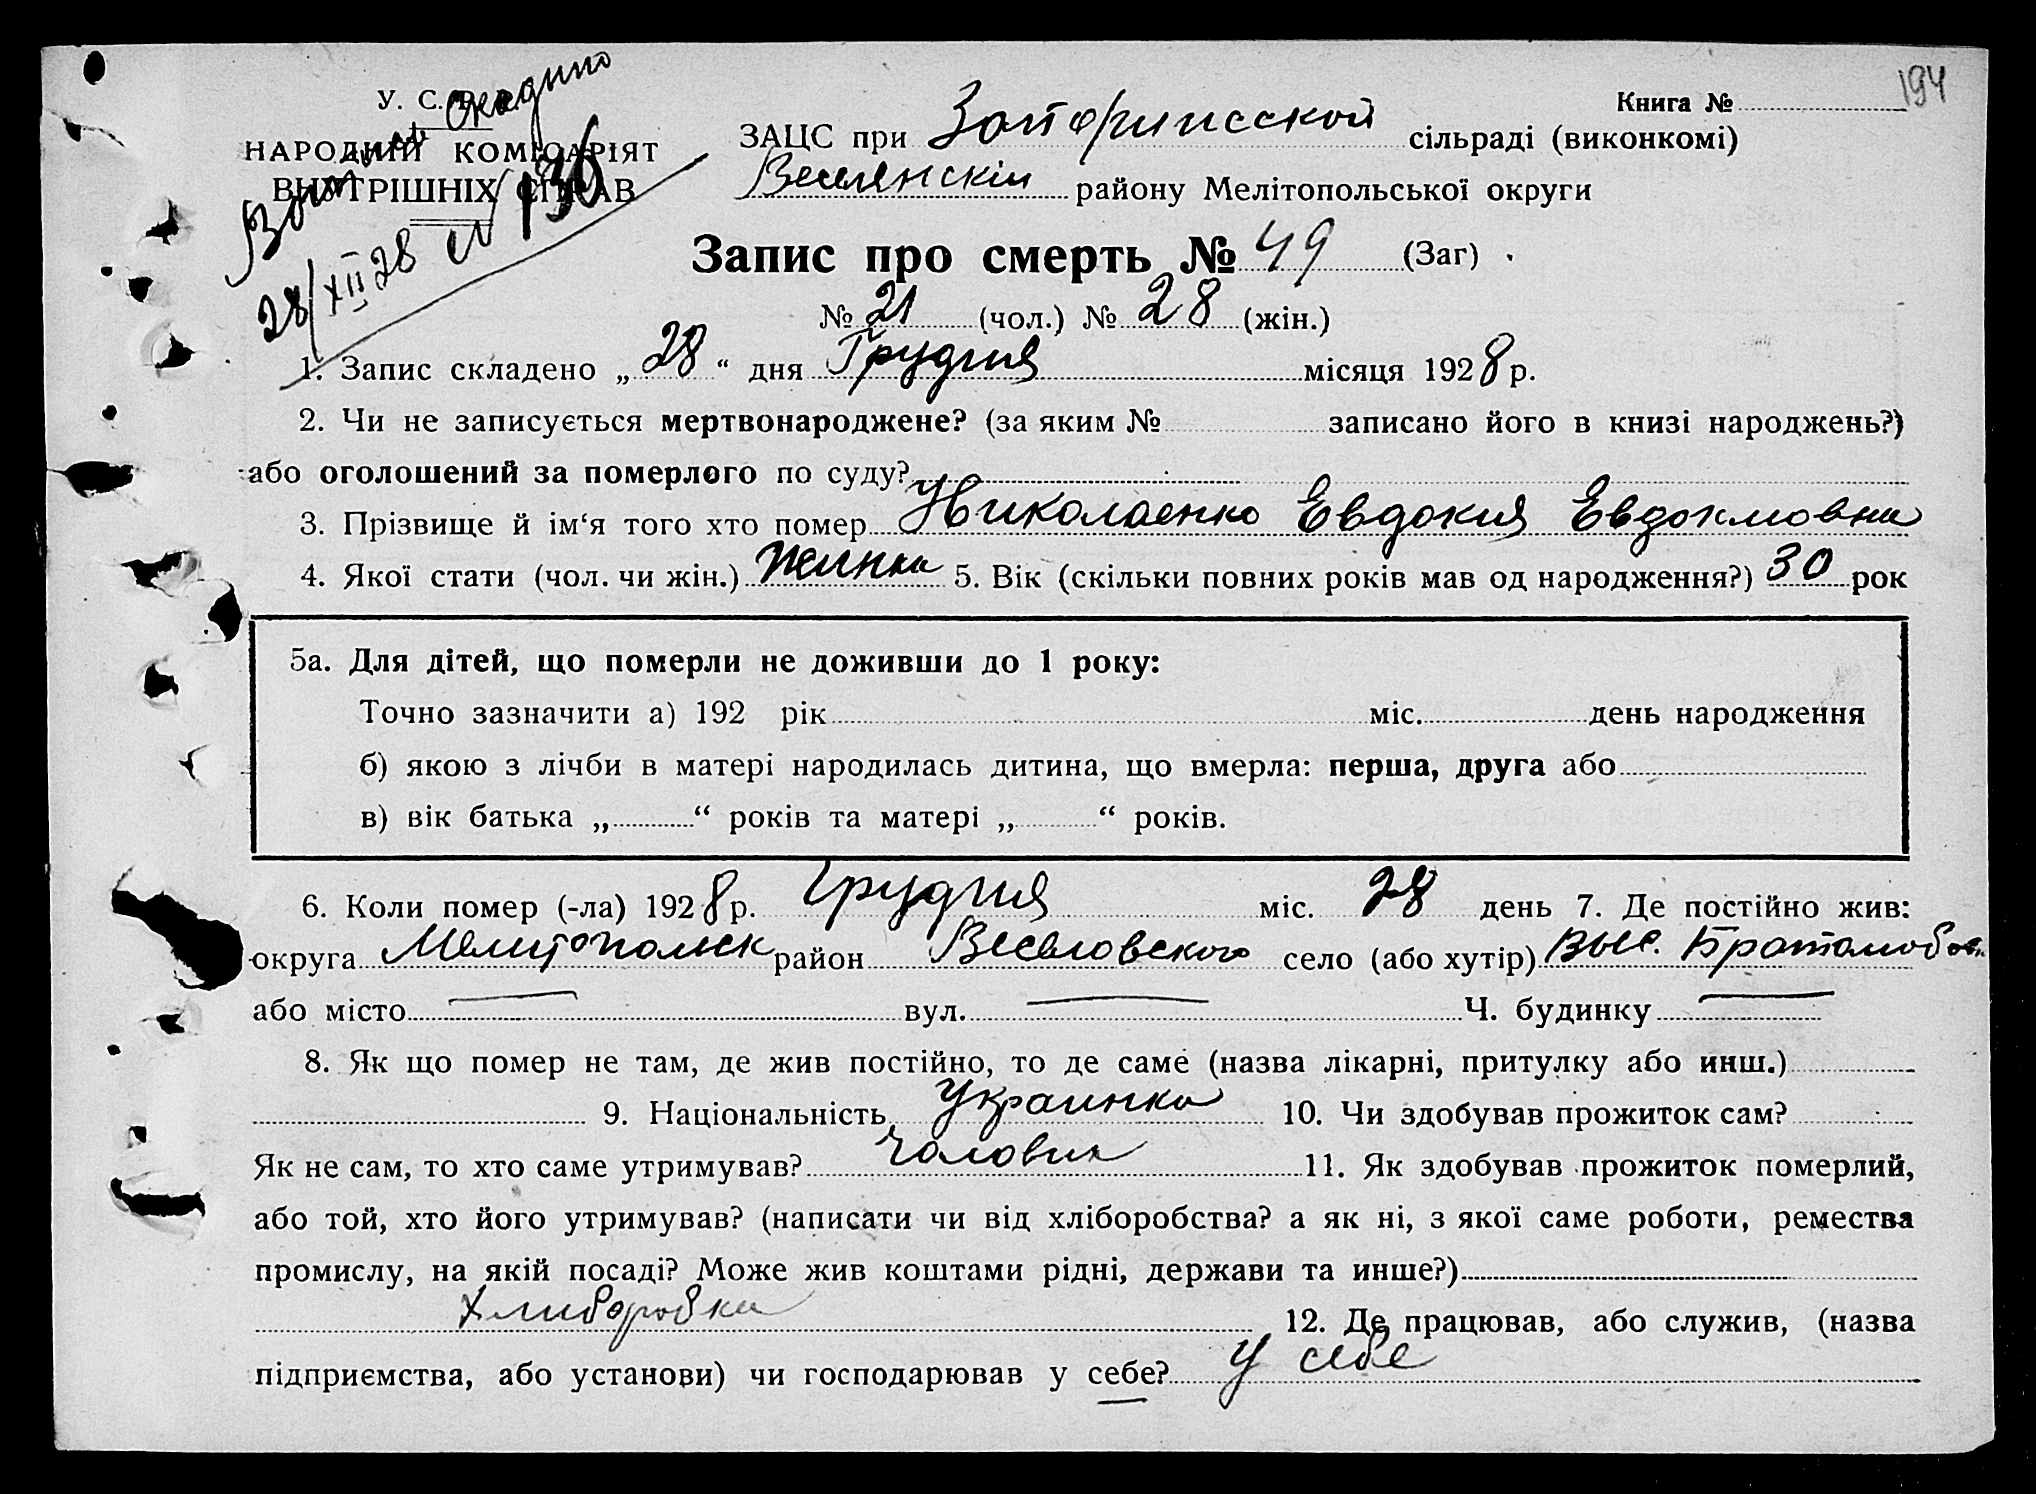 194
У. С. Р. Р.
НАРОДНІЙ КОМІСАРІЯТ
ВНУТРІШНІХ СПРАВ
28/XII 28 № 136
Книга №
ЗАЦС при сільраді (виконкомі)
Веселянскім району Мелітопольської округи
Запис про смерть № 49 (Заг)
№ 21 (чол.) № 28 (жін.)
1. Запис складено „ 28 “ дня Грудня місяця 1928 р.
2. Чи не записується мертвонароджене? (за яким № записано його в книзі народжень?)
або оголошений за померлого по суду?
3. Прізвище й ім‘я того хто помер Николаенко Евдокия Евдокимовна
4. Якої стати (чол. чи жін.) жинка 5. Вік (скільки повних років мав од народження?) 30 рок
5а. Для дітей, що померли не доживши до 1 року:
Точно зазначити а) 192 рік міс. день народження
б) якою з лічби в матері народилась дитина, що вмерла: перша, друга або
в) вік батька „ “ років та матері „ “ років.
6. Коли помер (-ла) 1928 р. Грудня міс. 28 день 7. Де постійно жив:
округа Мелитопольск район Веселовского село (або хутір) выс.
або місто — вул. — Ч. будинку —
8. Як що помер не там, де жив постійно, то де саме (назва лікарні, притулку або инш.)
9. Національність Украинка 10. Чи здобував прожиток сам?
Як не сам, то хто саме утримував? Чоловик 11. Як здобував прожиток померлий,
або той, хто його утримував? (написати чи від хліборобства? а як ні, з якої саме роботи, ремества
промислу, на якій посаді? Може жив коштами рідні, держави та инше?)
Хлиборобка 12. Де працював, або служив, (назва
підприємства, або установи) чи господарював у себе? У себе